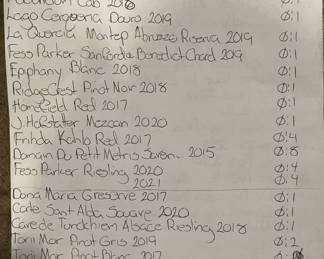 Cab 2018 Ø:1
Lago Cerqueira Douro 2019 Ø:1
La Quercia Montep Abruzzo Riserva 2019 Ø:1
Fess Parker Benedict Chard 2019 Ø:1
Epiphany Blanc 2018 Ø:1
RidgeCrest Pinot Noir 2018 Ø:1
Homefield Red 2017 Ø:1
J.Hofstatter Meczan 2020 Ø:1
Frihda Kahlo Red 2017 Ø:4
Domain Du Petit Metris Saven... 2015 Ø:8
Fess Parker Riesling 2020 Ø:4
2021 Ø:4
Dona Maria Gres&rve 2017 Ø:1
Corte Sant Alda Soave 2020 Ø:1
Cave de Turckhien Alsace Riesling 2018 Ø:1
Torii Mor Pinot Gris 2019 Ø:2
Torii Mor Pinot Blanc 2017